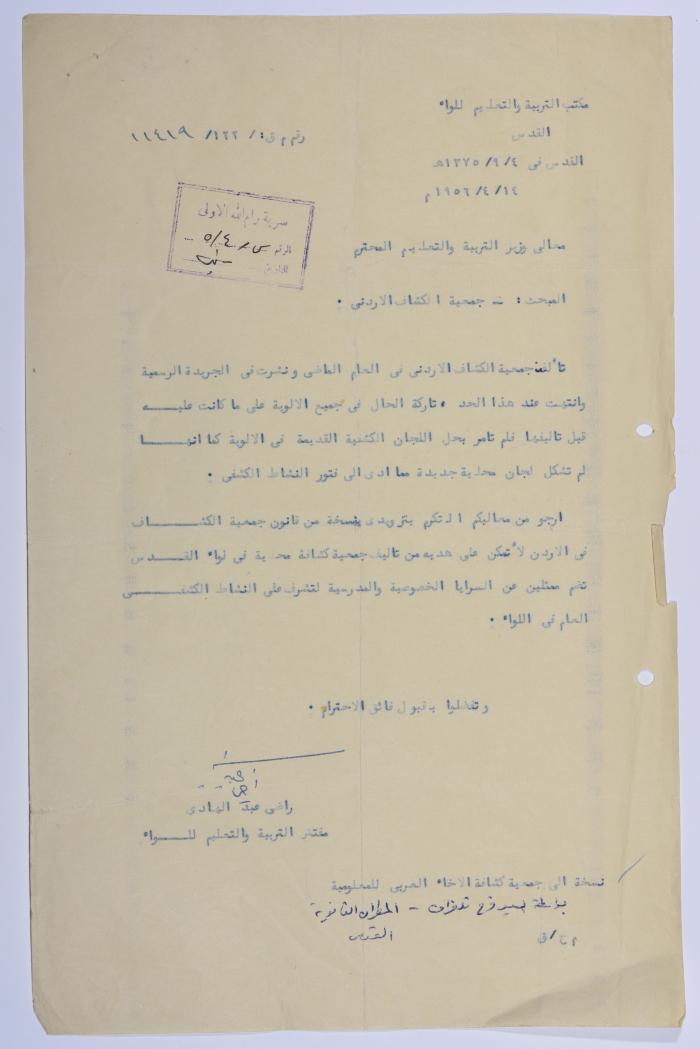 مكتب التربية والتعليم للواء
القدس
رقم م ق : / ١٢٢/ ١١٤١٩
القدس فى ٤ /٩ /١٣٧٥هـ
١٤ /٤ /١٩٥٦م
سرية رام الله الاولى
الرقم س ر ٥/٤
التاريخ
معالى وزير التربية والتعليم المحترم
المبحث : ـ جمعية الكشاف الاردنى .
تألفت جمعية الكشاف الاردنى فى العام الماضى ونشرت فى الجريدة الرسمية
وانتهت عند هذا الحد ، تاركة الحال فى جميع الالوية على ما كانت عليــه
قبل تاليفها فلم تامر بحل اللجان الكشفية القديمة فى الالوية كما انهـا
لم تشكل لجان محلية جديدة مما ادى الى فتور النشاط الكشفى .
ارجو من معاليكم التكرم بتزويدى بنسخة من قانون جمعية الكشــاف
فى الاردن لأتمكن على هديه من تاليف جمعية كشافة محلية فى لواء القــدس
تضم ممثلين عن السرايا الخصوصية والمدرسية لتشرف على النشاط الكشفــى
العام فى اللواء .
وتفضلوا بقبول فائق الاحترام .
راضى عبد الهادى
مفتش التربية والتعليم للــواء
نسخة الى جمعية كشافة الاخاء العربى للمعلومية
بواسطة السيد فرح تلحمي - المطران الثانوية
القدس
م ح / ق